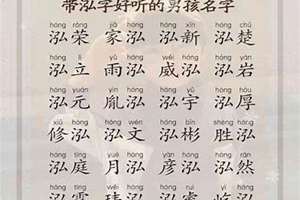 带泓字好听的男孩名字
hóng róng jiā hóng hóng xīn hóng chǔ
泓荣 家泓 泓新 泓楚
hóng lì yǔ hóng wēi hóng hóng yán
泓立 雨泓 威泓 泓岩
hóng yuán yìn hóng hóng yǔ hóng hòu
泓元 胤泓 泓宇 泓厚
xiū hóng hóng wén hóng bīn shèng hóng
修泓 泓文 泓彬 胜泓
hóng tíng yuè hóng yàn hóng hóng rán
泓庭 月泓 彦泓 泓然
hóng tíng wěi hóng hóng ruì lín hóng
泓霆 泓 泓睿 临泓